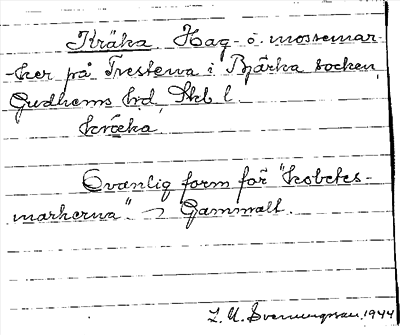 Kråka Hag- o. mossemar-
-ker på Trestena i Bjärka socken,
Gudhems hd, Skb l.
kråka
Ovanlig form för "kobetes-
markerna". Gammalt.
L. M. Svenungsson 1944